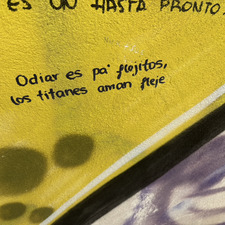 ES UN HASTA PRONTO.
Odiar es pa' flojitos,
los titanes aman fleje